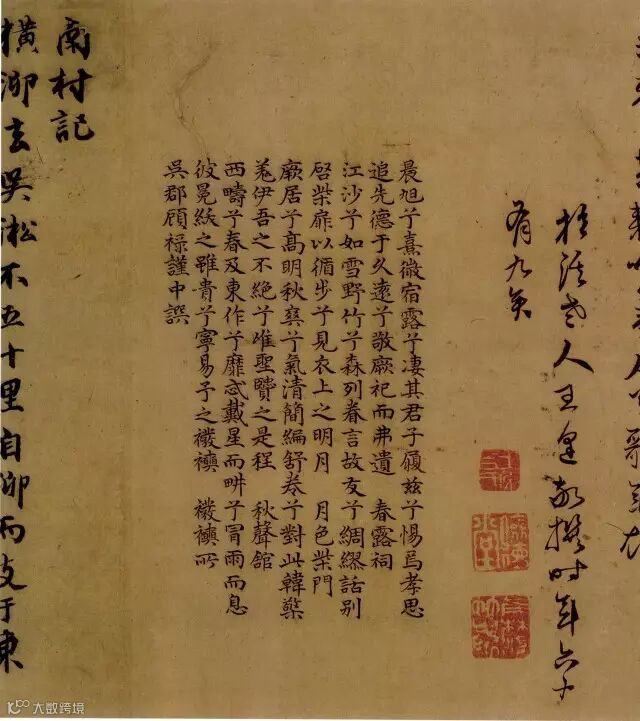 梧溪老人王逢敬撰时年六十
有九矣
晨旭兮熹微宿露兮凄其君子履兹兮惕焉孝思
追先德于久遠兮敬厥祀而弗遺　春露祠
江沙兮如雪野竹兮森列眷言故友兮綢繆話別
啓柴扉以循步兮見衣上之明月　月色柴門
厥居兮髙明秋爽兮氣清簡編舒卷兮對此韓檠
羌伊吾之不絶兮唯聖贒之是程　秋聲館
西疇兮春及東作兮靡忒戴星而畊兮冒雨而息
彼冕紱之雖貴兮寧易予之襏襫　襏襫所
吳郡顧祿謹中譔
南村記
橫泖去吳淞不五十里自泖而支于東
大数跨境